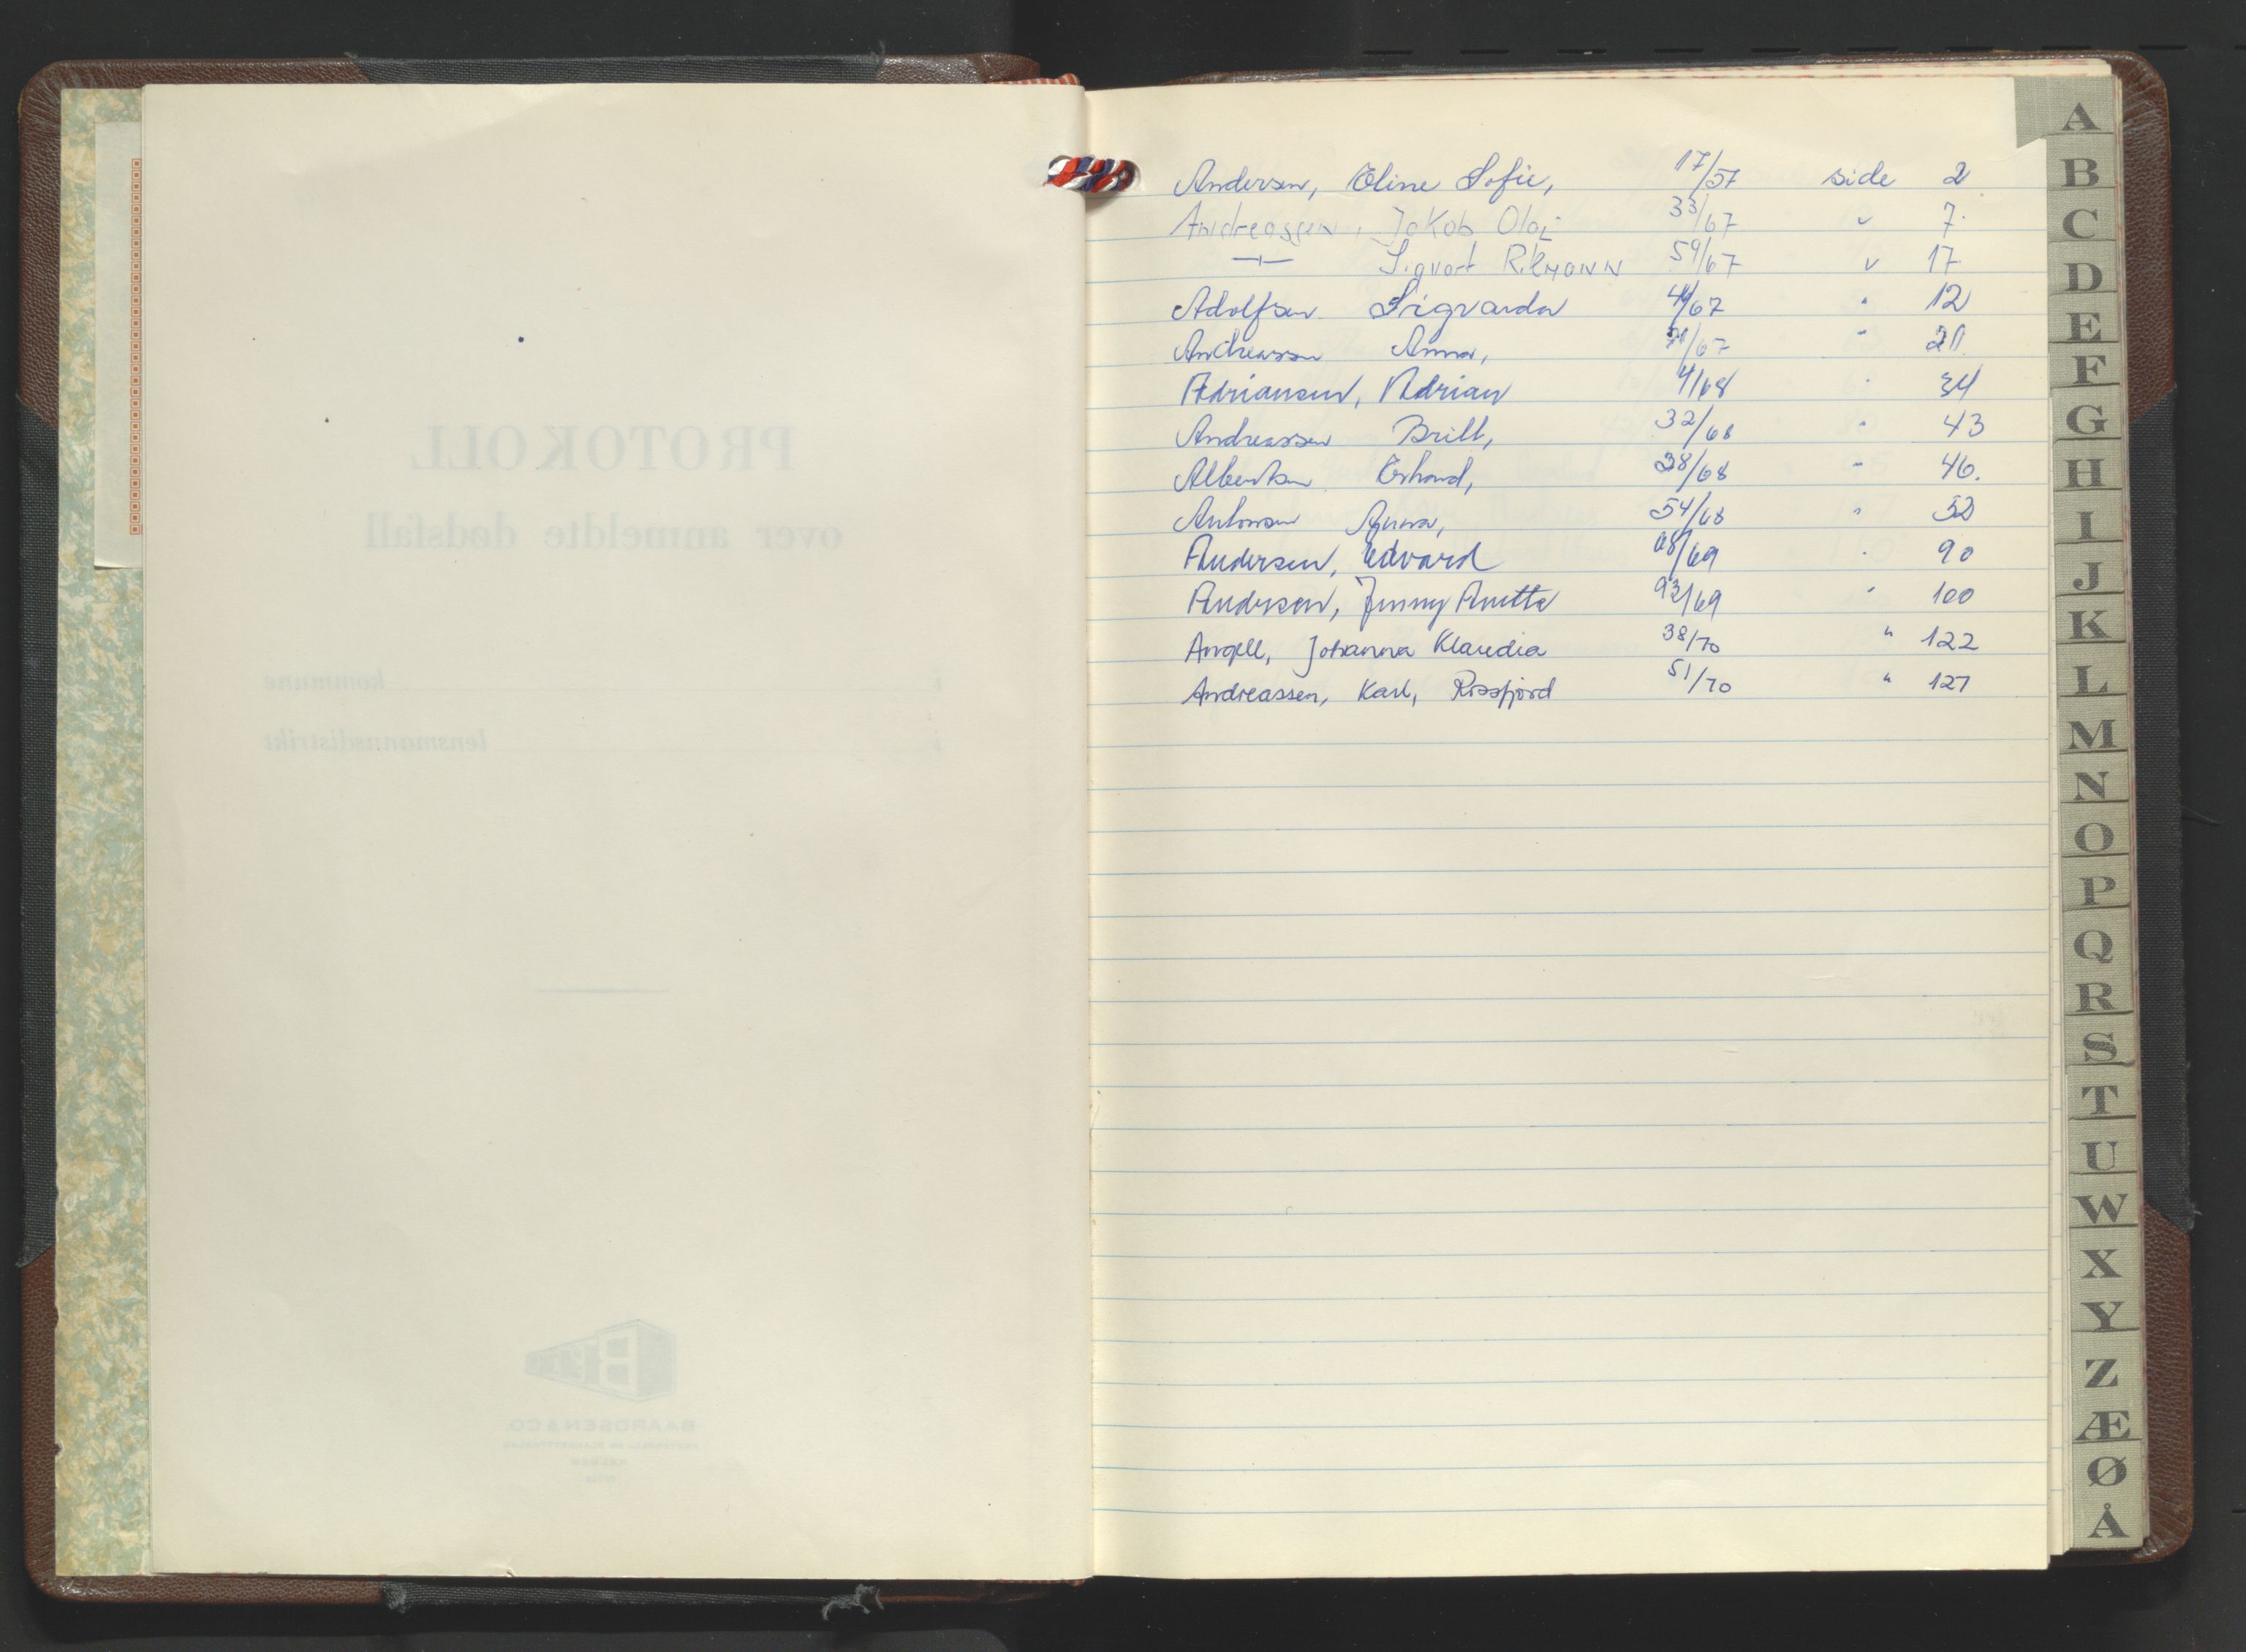 PROTOKOLL
over anmeldte dødsfall
i kommune
i lensmannsdistrikt
BAARDSEN & CO.
Andersen, Eline Sofie, 17/57 side 2
Andreassen, Jakob Olai 33/67 " 7.
—"— Sigvart Rikmann 59/67 " 17.
Adolfsen Sigvarda 44/67 " 12
Andreassen Anna, /67 " 21.
Adriansen, Adrian 4/68 " 34
Andreassen Britt, 32/68 " 43
Albertsen Erhard, 38/68 " 46.
Antonsen Agnna, 54/68 " 52
Andersen, Edvard 68/69 " 90
Andersen, Jenny Anette 93/69 " 100
Angell, Johanna Klaudia 38/70 " 122
Andreassen, Karl, Rossfjord 51/70 " 127
A
B
C
D
E
F
G
H
I
J
K
L
M
N
O
P
Q
R
S
T
U
W
X
Y
Z
Æ
Ø
Å